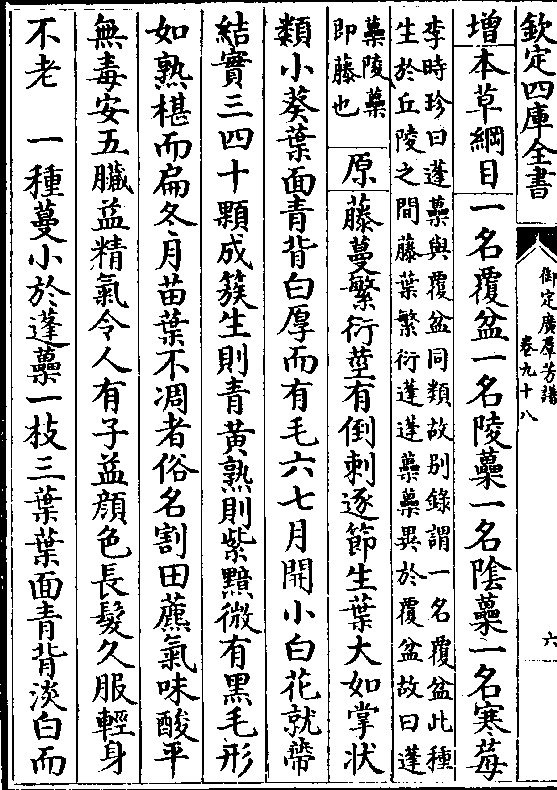 欽定四庫全書
御定廣羣芳譜
卷九十八
六
增本草綱目一名覆盆一名陵虆一名陰虆一名寒莓
李時珍曰蓬虆與覆盆同類故别錄謂一名覆盆此種
生於丘陵之間藤葉繁衍蓬蓬虆虆異於覆盆故曰蓬
虆陵虆
即藤也
原藤蔓繁衍莖有倒刺逐節生葉大如掌狀
類小葵葉面青背白厚而有毛六七月開小白花就蔕
結實三四十顆成簇生則青黃熟則紫黯微有黑毛形
如熟椹而扁冬月苗葉不凋者俗名割田藨氣味酸平
無毒安五臟益精氣令人有子益顔色長髮久服輕身
不老　一種蔓小於蓬虆一枝三葉葉面青背淡白而